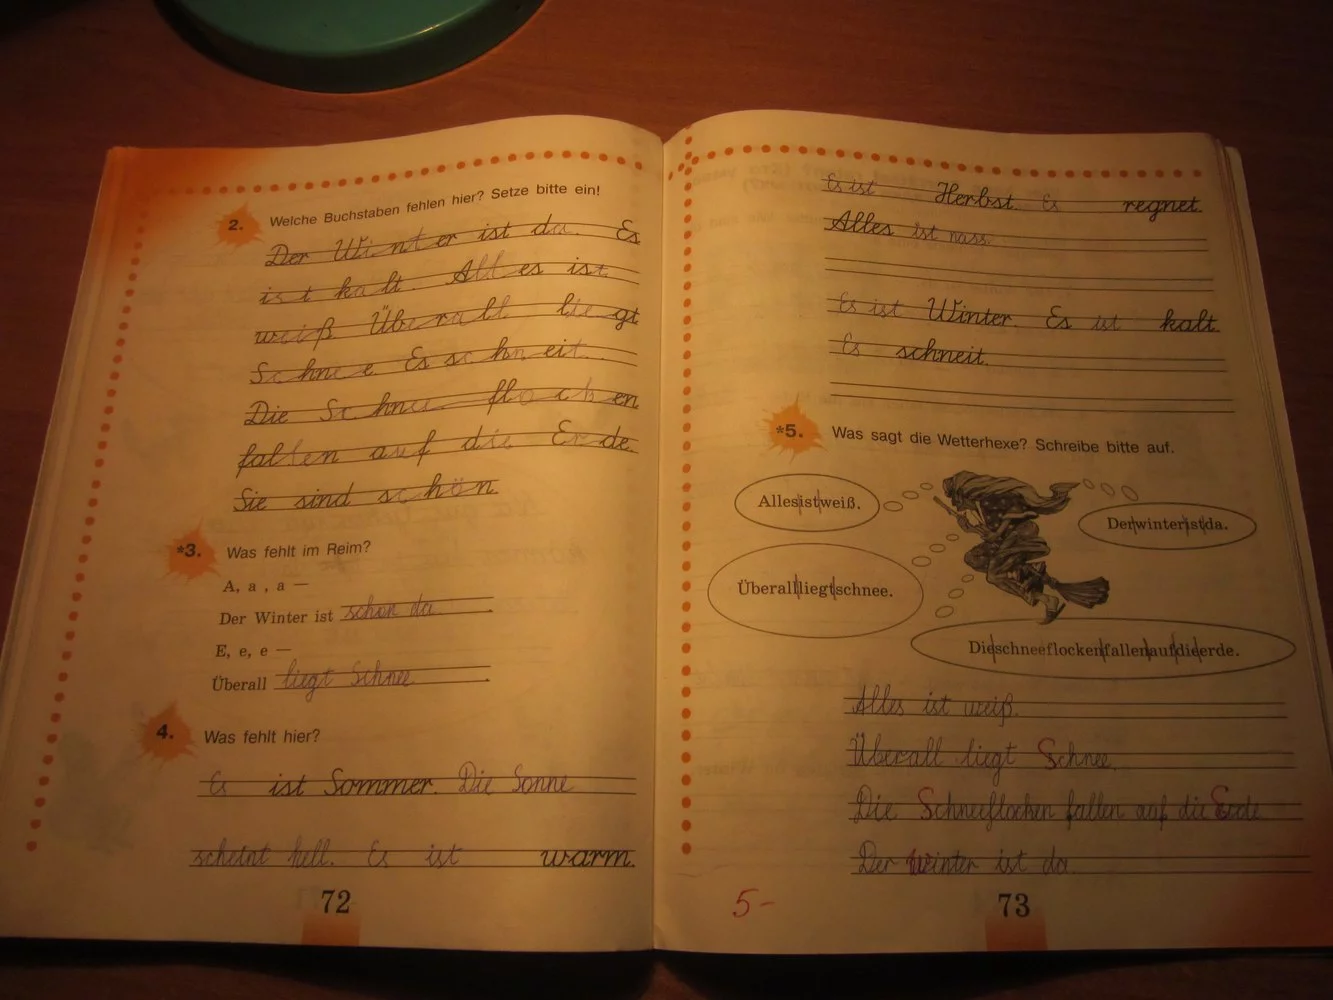 2. Welche Buchstaben fehlen hier? Setze bitte ein!
Der Winter ist da. Es
ist kalt. Alles ist
weiß. Überall liegt
Schnee Es schneit.
Die Schneeflocken
fallen auf die Erde.
Sie sind schön.
*3. Was fehlt im Reim?
A, a, a —
Der Winter ist schon da.
E, e, e —
Überall liegt Schnee.
4. Was fehlt hier?
Es ist Sommer. Die Sonne
scheint hell. Es ist warm.
72
Es ist Herbst. Es regnet.
Alles ist nass.
Es ist Winter. Es ist kalt.
Es schneit.
*5. Was sagt die Wetterhexe? Schreibe bitte auf.
Allesistweiß.
Derwinteristda.
Überallliegtschnee.
Dieschneeflockenfallenaufdieerde.
Alles ist weiß.
Überall liegt Schnee.
Die Schneeflocken fallen auf die Erde
Der Winter ist da
5-
73